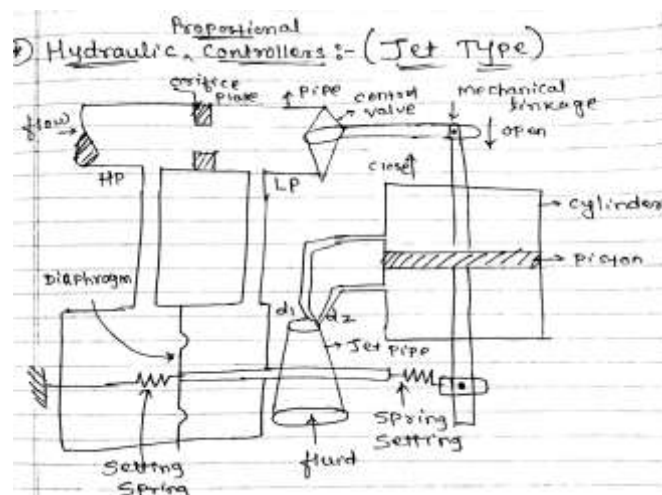 Proportional
Hydraulic Controllers :- (Jet Type)
orifice
plate
pipe
control
valve
mechanical
linkage
flow
open
close
HP
LP
cylinder
piston
Diaphragm
d1
d2
Jet pipe
Spring
Setting
Setting
Spring
fluid